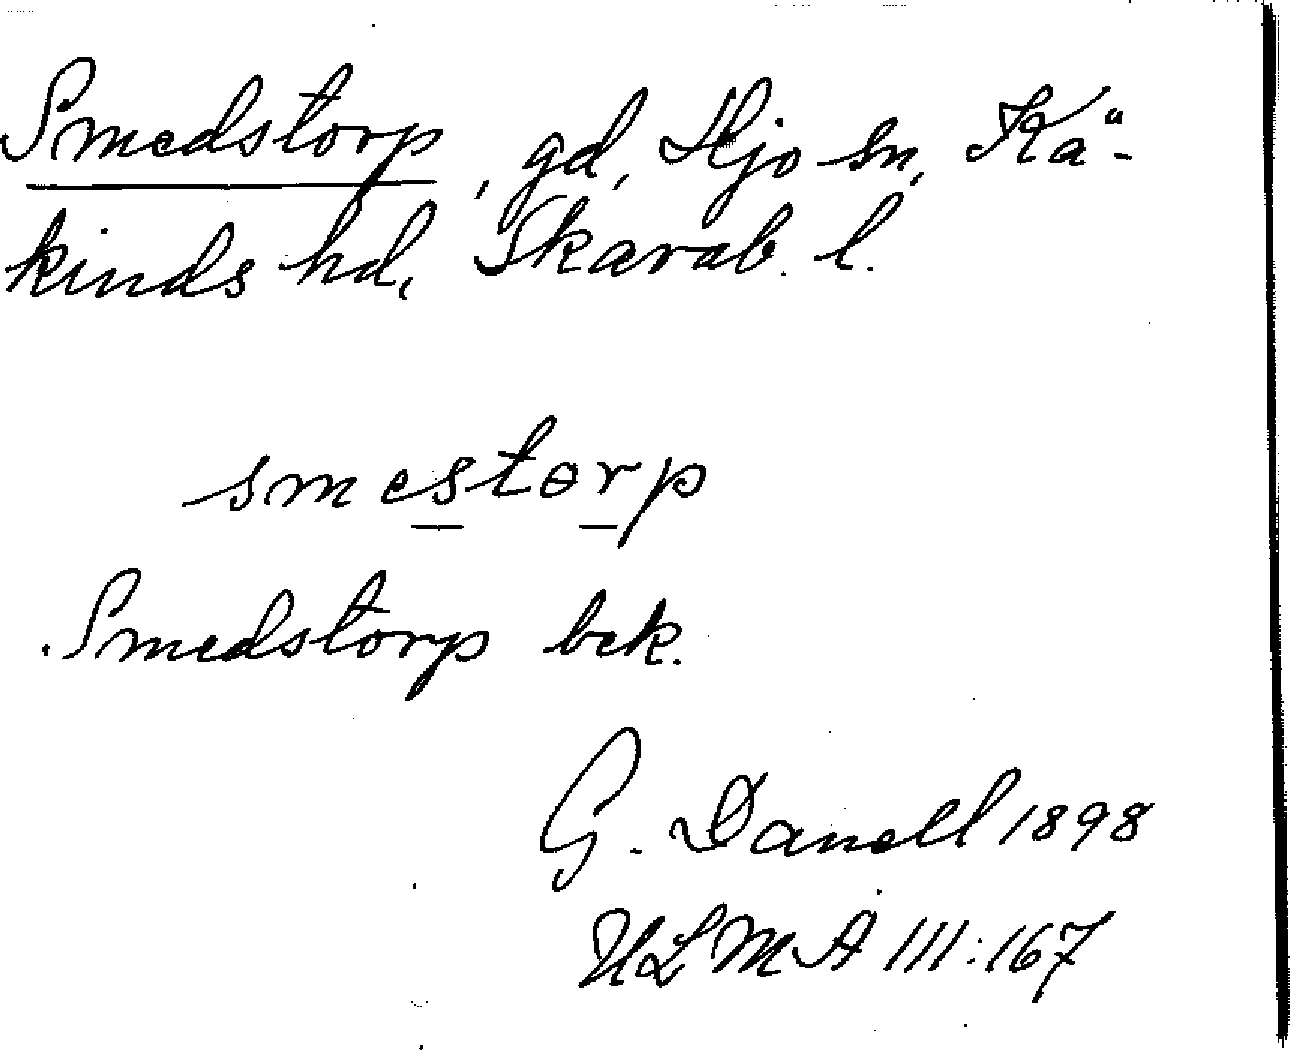 Smedstorp, gd, Hjo sn, Kå-
kinds hd, Skarab. l.
smestɵrp
Smedstorp bek.
G. Danell 1898
ULMA 111:167